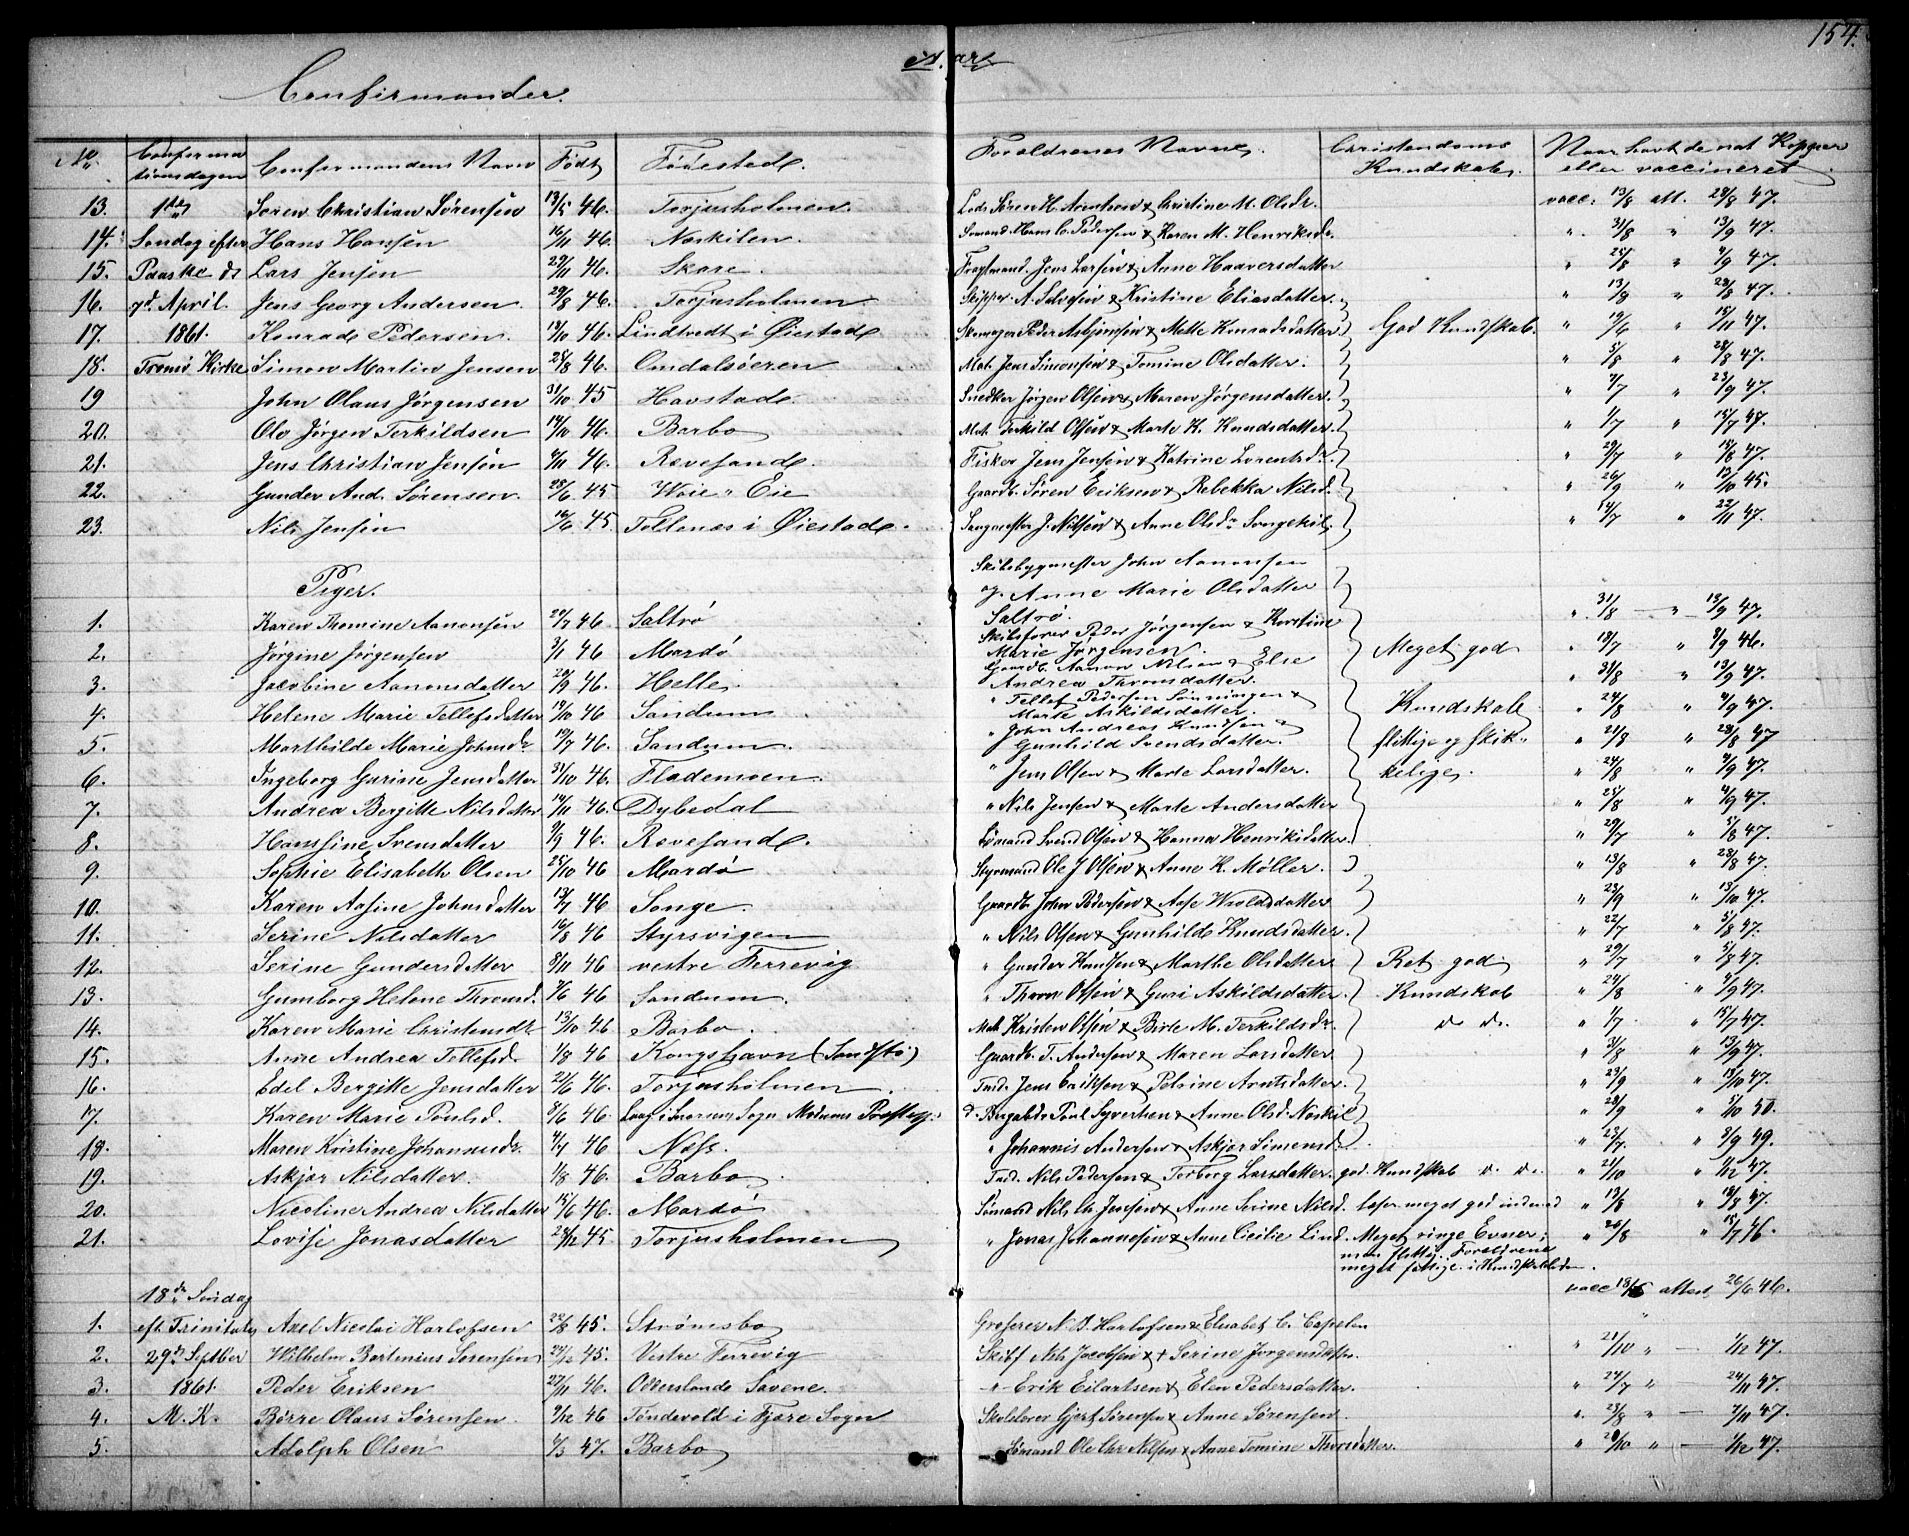 154.
Aar
Confirmander.
No. Confirmationsdagen Confirmandens Navn Født Fødested. Forældrenes Navne. Christendoms Kundskab. Naar havt de nat. Kopper eller vaccineret.
13. 1ste Søren Christian Sørensen 13/5 46. Torjusholmen. Lods Søren H. & Christine M. Olsdr. vacc. 13/8 att. 28/8 47.
14. Søndag efter Hans Hansen 16/11 46. Neskilen. Sømand Hans C. Pedersen & Karen M. Henriksdr. " 31/8 " 13/9 47.
15. Paaske d. Lars Jensen 29/11 46. Skare. Fragtmand. Jens Larsen & Anne Haaversdatter " 25/8 " 4/9 47.
16. 7d. April. Jens Georg Andersen. 29/8 46. Torjusholmen Skipper A. Salvesen & Kristine Eliasdatter. " 13/8 " 28/8 47.
17. 1861. Konrad Pedersen. 13/10 46. Lindtvedt i Øiestad Skomager Peder Asbjønsen & Mette Konradsdatter. God Kundskab. " 19/6 " 15/11 47.
18. Tromø Kirke Simon Martin Jensen 25/8 46. Omdalsøeren Mat. Jens Simonsen & Tomine Olsdatter. " 5/8 " 28/8 47.
19 John Olaus Jørgensen 31/10 45 Havstad. Snedker Jørgen Olsen & Maren Jørgensdatter. " 7/7 " 23/9 47.
20. Ole Jørgen Terkildsen 14/10 46. Barbo Mat. Terkild Olsen & Marte K. Knudsdatter. " 1/7 " 15/7 47.
21. Jens Christian Jensen 4/11 46. Revesand. Fisker Jens Jensen & Katrine Lorentzdr. " 29/7 " 18/8 47.
22. Gunder And. Sørensen. 28/6 45 Woie " Eie Gaardb. Søren Eriksen & Rebekka Nilsd. " 26/9 " 13/10 45.
23. Nils Jensen 16/6 45 Tellenæs i Øiestad. J. Nilsen & Anne Olsdr. Songekil. " 14/7 " 22/11 47.
Piger.
Skibsbygmester John Aanonsen
og Anne Marie Olsdatter
1. Karen Thomine Aanonsen 29/7 46 Saltrø Saltrø. " 31/8 " 13/9 47.
2. Jørgine Jørgensen 3/1 46 Mardø Skibsfører Peder Jørgensen & Kirstine Marie Jørgensen. Meget god " 18/7 " 8/9 46.
3. Jacobine Aanonsdatter 20/9 46. Helle. Gaardb. Aanon Nilsen & Else Andrea Thronsdatter. " 31/8 " 13/9 47.
4. Helene Marie Tellefsdatter 19/10 46 Sandum " Tellef Pedersen & Marte Askildsdatter. Kundskab " 24/8 " 4/9 47.
5. Marthilde Marie Johnsdr 19/7 46. Sandum. " John Andreas Knudsen & Gunhild Svendsdatter. flittige og skik- " 21/8 " 28/8 47
6. Ingeborg Gurine Jensdatter 31/10 46. Flademoen. " Jens Olsen & Marte Larsdatter. kelige. " 24/8 " 4/9 47.
7. Andrea Bergitte Nilsdatter 14/11 46. Dybedal " Nils Jensen & Marte Andersdatter " 25/8 " 4/9 47.
8. Hanssine Svensdatter 9/9 46. Revesand. Sømand Svend Olsen & Hanna Henriksdatter. " 29/7 " 5/8 47.
9. Sophie Elisabeth Olsen 25/10 46 Mardø Styrmand Ole J Olsen & Anne K. Møller. " 13/8 " 28/8 47.
10. Karen Aasine Johnsdatter 13/7 46 Songe. Gaardb. John Pedersen & Aase Wroldsdatter " 23/9 " 13/10 47.
11. Serine Nilsdatter 16/8 46 Styrsvigen " Nils Olsen & Gunhilde Knudsdatter. " 22/7 " 5/8 47.
12. Serine Gundersdatter 8/11 46 vestre Ferrevig " Gunder Knudsen & Marthe Olsdatter Ret god " 29/7 " 5/8 47.
13. Gumborg Helene Thronsd. 7/6 46 Sandum. " Thron Olsen & Guri Askildsdatter. Kundskab " 24/8 " 4/9 47.
14. Karen Marie Christensdr 13/10 46 Barbo. Mat. Kristen Olsen & Birte M. Terkildsdr. d. d. " 1/7 " 15/7 47.
15. Anne Andrea Tellefsd. 1/8 46 Kongshavn (Sandstø) Gaardb. T. Andersen & Maren Larsdatter. " 31/8 " 13/9 47.
16. Edel Bergitte Jensdatter 21/6 46. Torjusholmen Tard. Jens Eriksen & Petrine Arntsdatter. " 23/9 " 13/10 47.
17. Karen Marie Poulsd. 8/6 46 i Snarem Sogn Modums Præsteg. d. Poul Syvertsen & Anne Olsd. Neskil " 28/9 " 5/10 50.
18. Maren Kristine Johannesdr. 4/4 46 Næss. " Johannis Andersen & Askjær Simensd. " 23/7 " 3/9 49.
19. Askjær Nilsdatter. 1/8 46. Barbo. Tard. Nils Pedersen & Torborg Larsdatter. god Kundskab d. d. " 21/10 " 1/12 47.
20. Nicoline Andrea Nilsdatter 15/6 46. Mardø Sømand Nils Ch Jensen & Anne Serine Nilsd. læser meget god indenad " 13/8 " 18/8 47.
21. Lovise Jonasdatter 23/12 45 Torjusholmen " Jonas Johannesen & Anne Cicilie Lind. Meget ringe Evner; " 26/8 " 15/7 46.
men flittig. Forældrene
meget fattige i Kundskaben.
18de Søndag vacc 18/6 attest. 26/6 46.
1. eft. Trinitatis Axel Nicolai Harlofsen 22/8 45. Strømsbo Grosserer N. B. Harlofsen & Elisabet C. Capelen
2. 29de Septber Wilhelm Bartinius Sørensen 24/12 45. Vestre Ferrevig Skibsf Nils Jacobsen & + Serine Jørgensdatter. " 21/10 " — 1/12 47.
3. 1861. Peder Eriksen 27/11 46. Odderslands Savene. " Erik Eilartsen & Elen Pedersdatter. " 24/7 " 24/11 47.
4. M. K. Børre Olaus Sørensen. 9/12 46 Tøndevold i Fjære Sogn Skolelærer Gjert Sørensen & Anne Sørensen. " 23/8 " — 7/11 47.
5. Adolph Olsen 6/3 47. Barbo Sømand Ole Chr Nilsen & Anne Tomine Thorsdatter. " 20/10 " — 1/12 47.